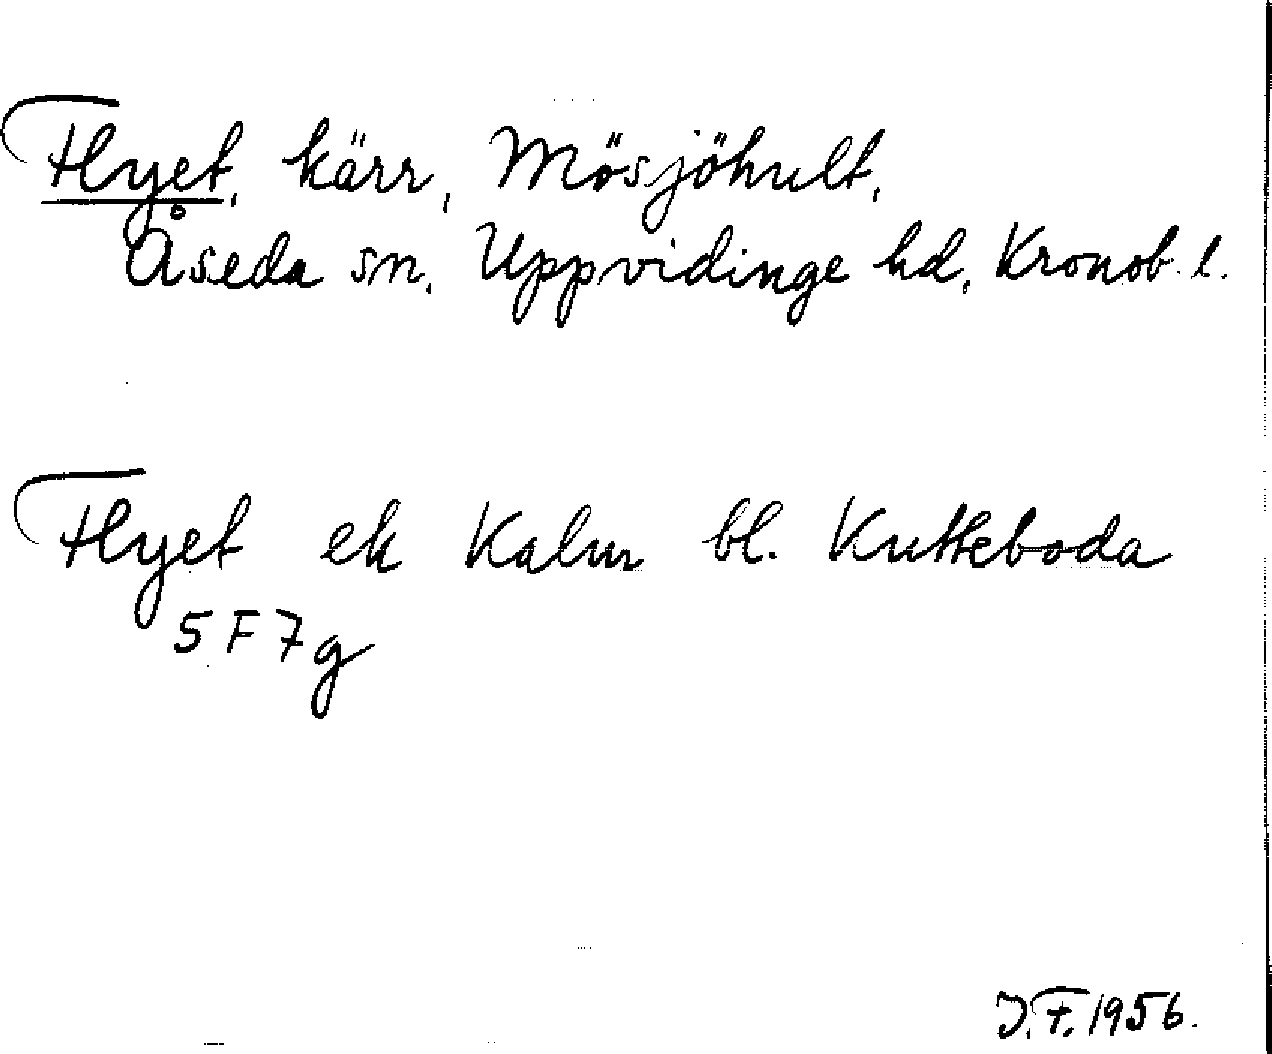 Flyet, kärr, Mösjöhult,
Åseda sn, Uppvidinge hd, Kronob. l.
Flyet ek Kalm bl. Kutteboda
5 F 7 g
J. F. 1956.